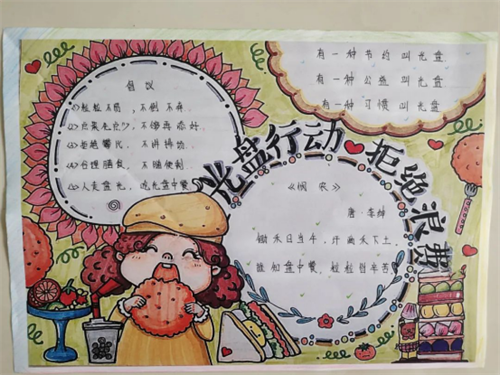 有一种节约叫光盘
有一种公益叫光盘
有一种习惯叫光盘
倡议
粒粒不易,不剩不弃.
不够再添
拒绝攀比,不讲排场.
合理膳食,不随便剩.
人走盘光,吃光盘中餐
光盘行动 拒绝浪费
《悯农》
唐 李绅
锄禾日当午,汗滴禾下土
谁知盘中餐,粒粒皆辛苦